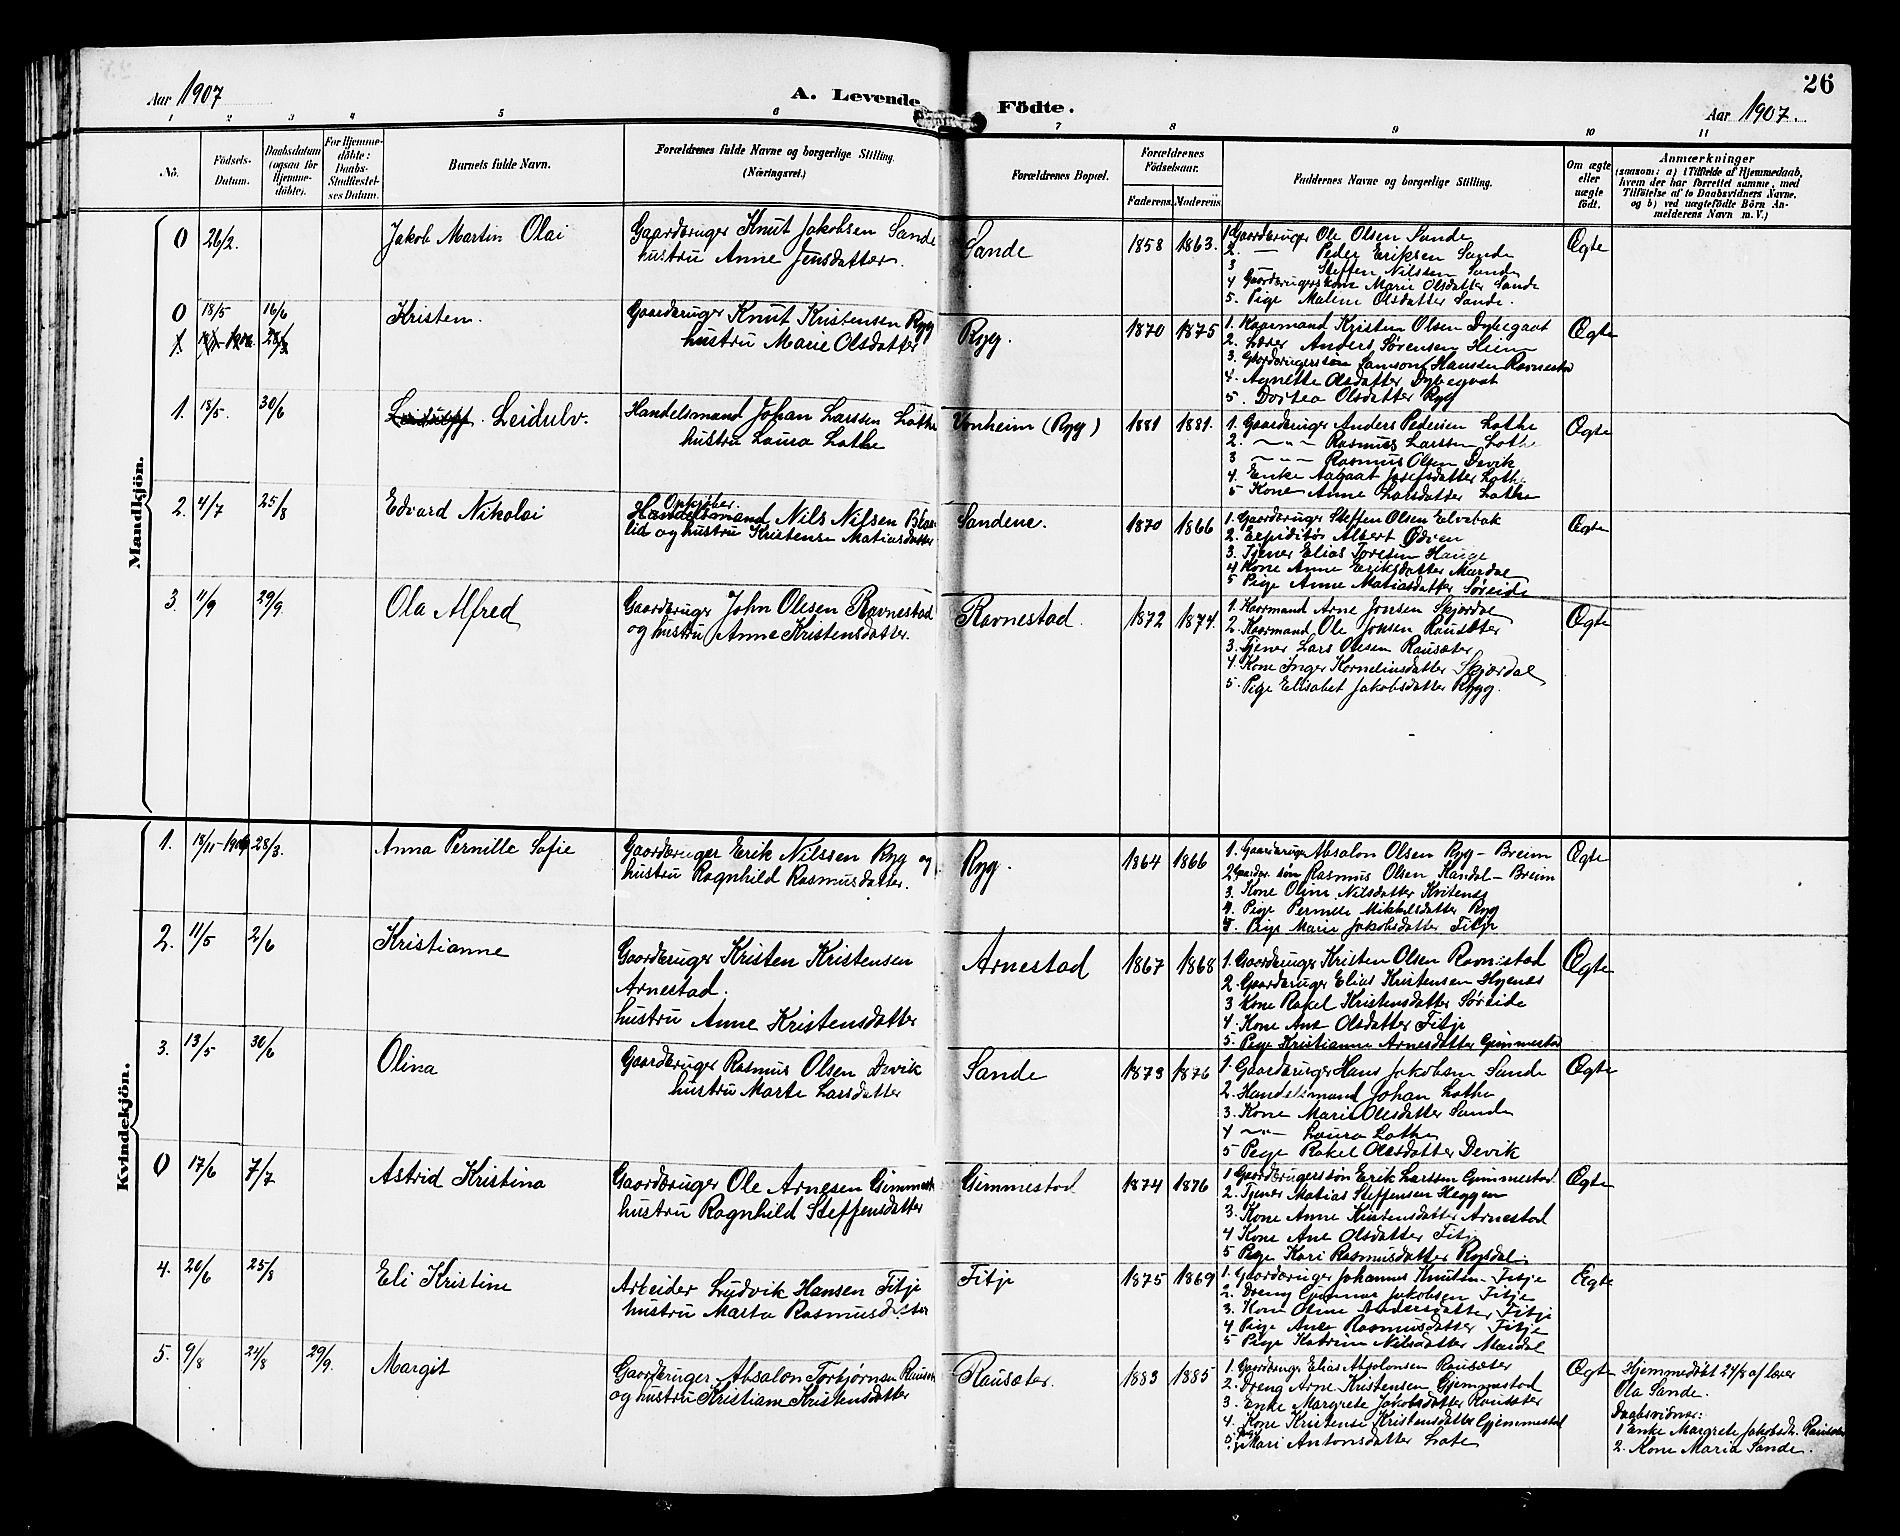 26
Aar 1907
A. Levende Födte.
Aar 1907.
1 2 3 4 5 6 7 8 9 10 11
No.
Födsels-Datum.
Daabsdatum (ogsaa for Hjemme-döbte).
For Hjemme-döbte: Daabs-Stadfæstel-ses Datum.
Barnets fulde Navn.
Forældrenes fulde Navne og borgerlige Stilling.
(Næringsvei.)
Forældrenes Bopæl.
Forældrenes Födselsaar.
Faderens. Moderens.
Faddernes Navne og borgerlige Stilling.
Om ægte eller uægte födt.
Anmærkninger
(saasom: a) i Tilfælde af Hjemmedaab, hvem der har forrettet samme, med Tilföielse af to Daabsvidners Navne, og b) ved uægtefödte Börn Anmelderens Navn m. V.)
Mandkjön.
0 26/2. Jakob Martin Olai
Gaardbruger Knut Jakobsen Sande
hustru Anne Jensdatter.
Sande 1858 1863.
1 Gaardbruger Ole Olsen Sande
2. — Peder Eriksen Sande
3 — Steffen Nilssen Sande
4 Gaardbrugerskone Marie Olsdatter Sande
5. Pige Maline Olsdatter Sande.
Ægte
0 18/5 16/6 Kristen.
Gaardbruger Knut Kristensen Ryg
hustru Marie Olsdatter
Ryg. 1870 1875
1. Kaarmand Kristen Olsen Dybegaat
2. Lærer Anders Sørensen Heim
3. Gaardbrugerssøn Samson Hansen Ravnestad
4. Agnette Olsdatter Dybegvat
5. Dortea Olsdatter Ryg
Ægte
1. 18/5. 30/6 Leidulv.
Handelsmand Johan Larssen Lothe
hustru Laura Lothe
Vonheim (Ryg) 1881 1881.
1. Gaardbruger Anders Pedersen Lothe
2. —"— Rasmus Larssen Lothe
3 —"— Rasmus Olsen Devik
4. Enke Aagaat Josefsdatter Lothe
5 Kone Anne Larsdatter Lothe
Ægte
2. 4/7 25/8 Edvard Nikolai
Opkjøber
Handelsmand Nils Nilsen Blaa-
lid og hustru Kristense Matiasdatter
Sandene. 1870 1866
1. Gaardbruger Steffen Olsen Eelvebak
2. Expeditør Albert Ødven
3. Tjener Elias Toresen Hauge
4 Kone Anne Eriksdatter Mardal
5 Pige Anne Matiasdatter Søreide
Ægte
3. 11/9 29/9. Ola Alfred
Gaardbruger John Olesen Ravnestad
og hustru Anne Kristensdatter.
Ravnestad. 1872 1874.
1. Kaarmand Arne Jonsen Skjørdal
2. Kaarmand Ole Jonsen Rausæter
3. Tjener Lars Olesen Rausæter
4. Kone Inger Korneliusdatter Skjørdal
5. Pige Elisabet Jakobsdatter Rygg.
Ægte
Kvindekjön.
1. 18/11-1906 28/3. Anna Pernille Sofie
Gaardbruger Erik Nilssen Ryg og
hustru Ragnhild Rasmusdatter.
Ryg. 1864 1866
1. Gaardbruger Absalon Olsen Ryg - Breim
2 Gaardbr. søn Rasmus Olsen Kandal - Breim
3. Kone Oline Nilsdatter Kvitenes
4. Pige Pernille Mikkelsdatter Ryg
5. Pige Marie Jakobsdatter Fitje
Ægte
2. 11/5 2/6 Kristianne
Gaardbruger Kristen Kristensen
Arnestad.
hustru Anne Kristensdatter
Arnestad 1867 1868
1. Gaardbruger Kristen Olsen Ravnestad
2. Gaardbruger Elias Kristensen Hyenes
3 Kone Rakel Kristensdatter Søreide
4. Kone Ane Olsdatter Fitje
5. Pige Kristianne Arnesdatter Gimmestad
Ægte
3. 13/5 30/6 Olina
Gaardbruger Rasmus Olsen Devik
hustru Marte Larsdatter
Sande 1873 1876
1. Gaardbruger Hans Jakobsen Sande
2. Handelsmand Johan Lothe
3. Kone Marie Olesdatter Sande
4 —"— Laura Lothe
5 Pige Rakel Olesdatter Devik
Ægte
0 17/6 7/7 Astrid Kristina
Gaardbruger Ole Arnesen Gimmest
hustru Ragnhild Steffensdatter
Gimmestad 1874 1876
1 Gaardbrugerssøn Erik Larssen Gimmestad.
2. Tjener Matias Steffensen Heggen
3. Kone Anne Kristensdatter Arnestad
4 Kone Ane Olsdatter Fitje
5 Pige Kari Rasmusdatter Rygsdal.
Ægte
4. 20/6 25/8 Eli Kristine
Arbeider Ludvik Hansen Fitje
hustru Marta Rasmusdatter
Fitje 1875 1869
1. Gaardbruger Johannes Knutsen Fitje
2. Dreng Gunnar Jakobsen Fitje
3. Kone Oline Andersdatter Fitje
4 Pige Ane Rasmusdatter Fitje
5 Pige Katrine Nilsdatter Mardal
Ægte
5. 9/8 24/8 29/9. Margit
Gaardbruger Absalon Torbjørnsen Rausæt
og hustru Kristiane Kristensdatter
Rausæter. 1883 1885
1. Gaardbruger Elias Absolonsen Rausæter
2. Dreng Arne Kristensen Gjemmestad
3. Enke Margrete Jakobsdatter Rausæter
4. Kone Kristense Kristensdatter Gjemmestad
5. Pige Mari Antonsdatter Lote
Ægte
Hjemmedøbt 24/8 af lærer
Ola Sande.
Daabsvidner:
1 Enke Margrete Jakobsdt. Rausæter
2. Kone Maria Sande.